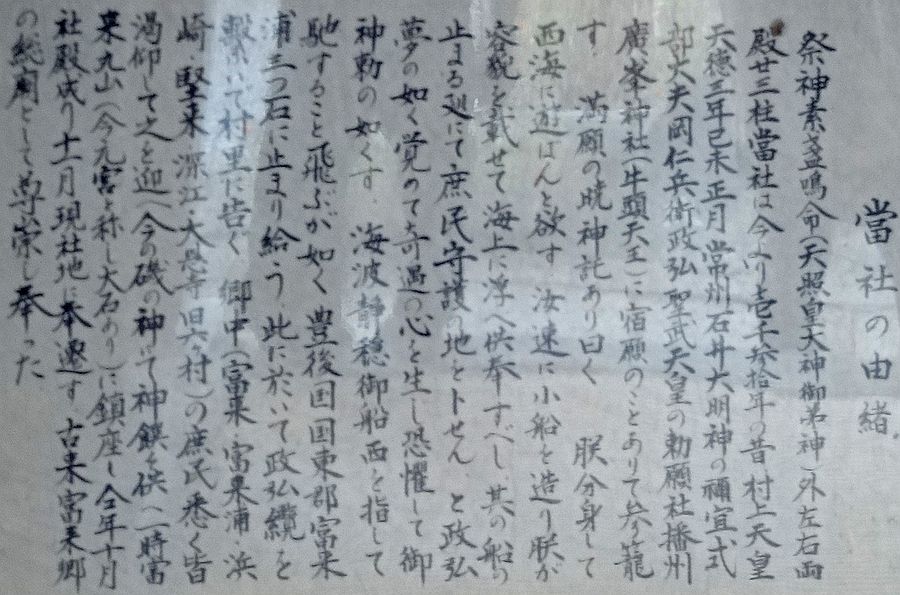 當社の由緒
祭神素盞嗚命(天照皇大神御弟神)外左右両
殿廿三柱當社は今より壱千参拾年の昔村上天皇
天徳三年己未正月常州石井大明神の禰宜式
部大夫岡仁兵衛政弘聖武天皇の勅願社播州
廣峯神社(牛頭天王)に宿願のことありて参籠
す 満願の暁神託あり曰く 朕分身して
西海に遊ばんと欲す汝速に小船を造り朕が
容貌を載せて海上に浮へ供奉すべし其の船の
止まる処にて庶民守護の地と卜せん と政弘
夢の如く覚めて奇遇の心を生し恐懼して御
神勅の如くす 海波静穏御船西を指して
馳すること飛ぶが如く豊後国国東郡富来
浦三つ石に止まり給う此に於いて政弘纜を
繋いで村里に告ぐ 郷中(富来 富来浦 浜
崎 堅来 深江 大恩寺旧六村)の庶民悉く皆
渇仰して之を迎へ今の磯の神にて神饌を供へ一時富
来丸山(今元宮と称し大石あり)に鎮座し仝年十月
社殿成り十一月現社地に奉遷す 古来富来郷
の総廟として尊崇し奉った